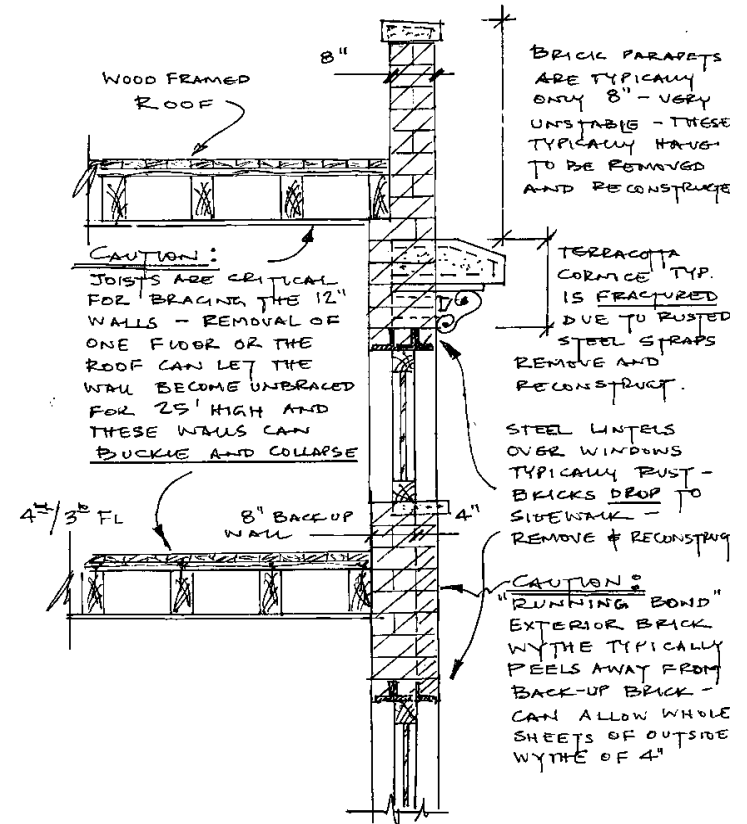 8"
WOOD FRAMED
ROOF
BRICK PARAPETS
ARE TYPICALLY
ONLY 8" - VERY
UNSTABLE - THESE
TYPICALLY HAVE
TO BE REMOVED
AND RECONSTRUCTE
CAUTION:
JOISTS ARE CRITICAL
FOR BRACING THE 12"
WALLS - REMOVAL OF
ONE FLOOR OR THE
ROOF CAN LET THE
WALL BECOME UNBRACED
FOR 25' HIGH AND
THESE WALLS CAN
BUCKLE AND COLLAPSE
TERRACOTTA
CORNICE TYP.
IS FRACTURED
DUE TO RUSTED
STEEL STRAPS
REMOVE AND
RECONSTRUCT.
STEEL LINTELS
OVER WINDOWS
TYPICALLY RUST -
BRICKS DROP TO
SIDEWALK -
REMOVE & RECONSTRUCT
4th/3rd FL
8" BACKUP
WALL
4"
CAUTION:
"RUNNING BOND"
EXTERIOR BRICK
WYTHE TYPICALLY
PEELS AWAY FROM
BACK-UP BRICK -
CAN ALLOW WHOLE
SHEETS OF OUTSIDE
WYTHE OF 4"